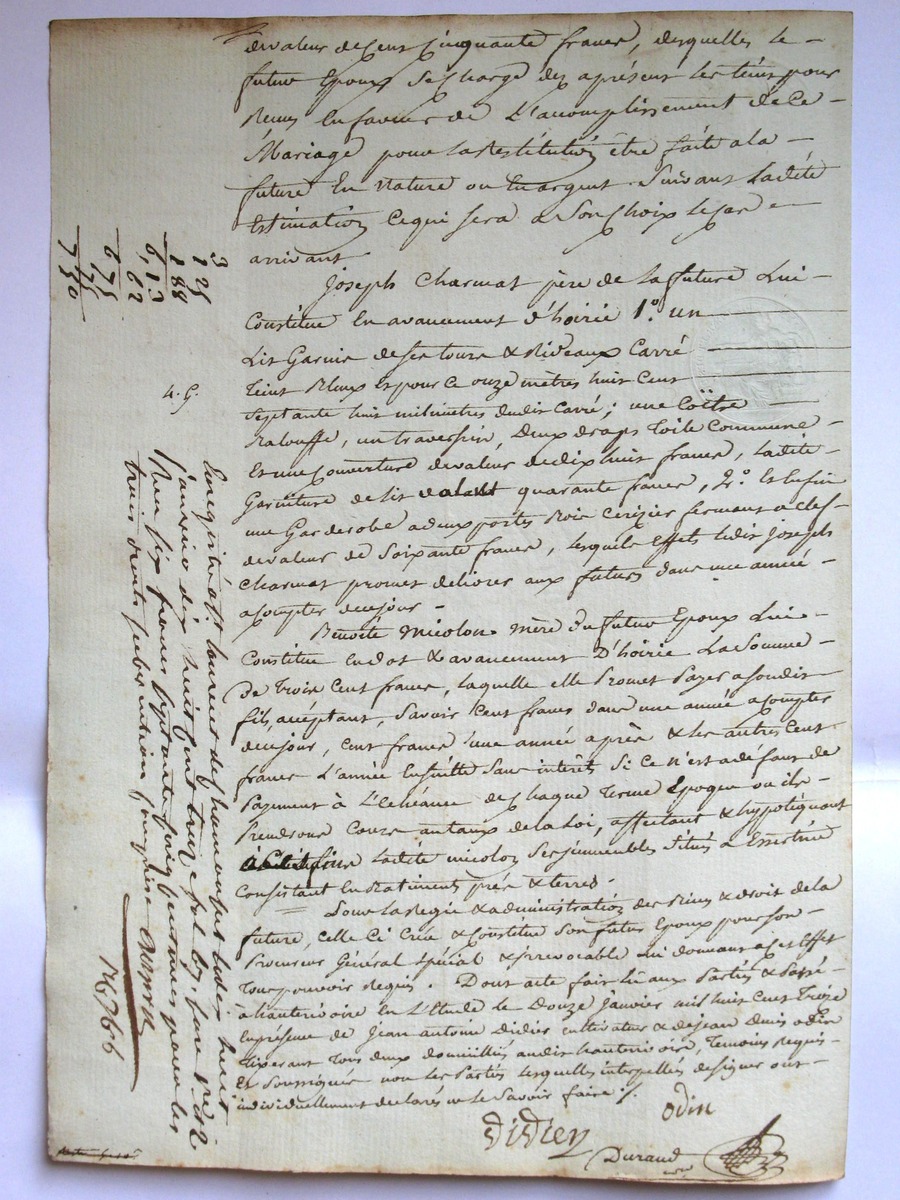 de valeur de cent cinquante francs, desquelles le
futur Epoux se charge des aprésent les tient pour
Reçues en faveur de L'acomplissement de Ce
Mariage pour la Restitution être faite a la
future En Nature ou En argent suivant ladite
Estimation Ce qui sera a son choix le Cas
arrivant
Joseph Charmat père de la future Lui
Constitue En avancement d'hoirie 1º. un
Lit Garnie de ses tours & Rideaux Carré
teint Bleux Et pour Ce onze mètres huit Cent
septante huit milimètres dudit Carré ; une Coëtre
Balouffe, un traversin, Deux draps Toile Commune
Et une Couverture de valeur de dix huit francs, ladite
Garniture de Lit valant quarante francs, 2º. Et Enfin
une Garderobe a deux portes Bois Cerizier fermant a Clef
de valeur de soixante francs, lesquels Effets ledit Joseph
Charmat promet delivrer aux futurs dans une année
a Compter de ce jour
Benoite Nicolon mère du futur Epoux Lui
Constitue En dot & avancement D'hoirie La Somme
De Trois Cent francs, laquelle elle Promet Payer a son dit
fils, acceptant, Savoir Cent francs dans une année a Compter
de ce jour, Cent francs une année après & les autres Cent
francs L'année Ensuitte sans intérêt si Ce n'est a défaut de
Payement à L'échéance de Chaque Terme Epoque ou ils
Prendront Cours au taux de la Loi, affectant & hypotéquant
ladite Nicolon ses immeubles situés a Essertine
Consistant En Batiments prés & terres.
Pour la Regie & administration des Biens & droit de la
future, celle Ci Crée & Constitue son futur Epoux pour son
Procureur Général spécial & irrévocable Lui donnant a Cet Effet
Tous pouvoir Requis. Dont acte fait Lu aux Parties & Passé
En L'Etude le Douze janvier mil huit Cent Treize
En présence de Jean antoine Didier cultivateur & de Jean Denis odin
Tixerant Tous deux domiciliés audit Témoins Requis
Et Soussignés non les Parties lesquelles interpellés de signer ont
individuellement declarés ne le Savoir faire ./.
Didier
odin
Durand
3
125
188
6,13
62
675
75
750
4. G.
Enregistré à St.
janvier dix huit cent treize fol.
Reçu six francs septante cinq centimes pour les
trois dixièmes subvention